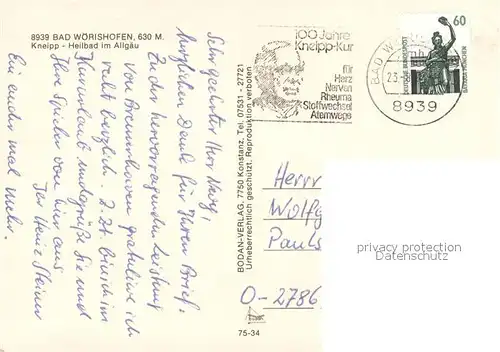 8939 BAD WÖRISHOFEN, 630 M.
Kneipp - Heilbad im Allgäu
Sehr geehrter Herr
herzlichen Dank für Ihren Brief.
Zu der hervorragenden Leistung
von Bremerhaven gratuliere ich
recht herzlich. Z. Zt. bin ich im
Kururlaub und grüße Sie und
Ihre Spieler von hier aus
Ihr Heinz Steiner
Ein ander mal mehr.
BODAN-VERLAG, 7750 Konstanz, Tel. 07531-
Urheberrechtlich geschützt. Reproduktion verboten
75-34
100 Jahre
Kneipp-Kur
für
Herz
Nerven
Rheuma
Stoffwechsel
Atemwege
BAD
23.
8939
60
DEUTSCHE BUNDESPOST
BAVARIA MÜNCHEN
Herrn
Wolfg
Pauls
O-2786
privacy protection
Datenschutz